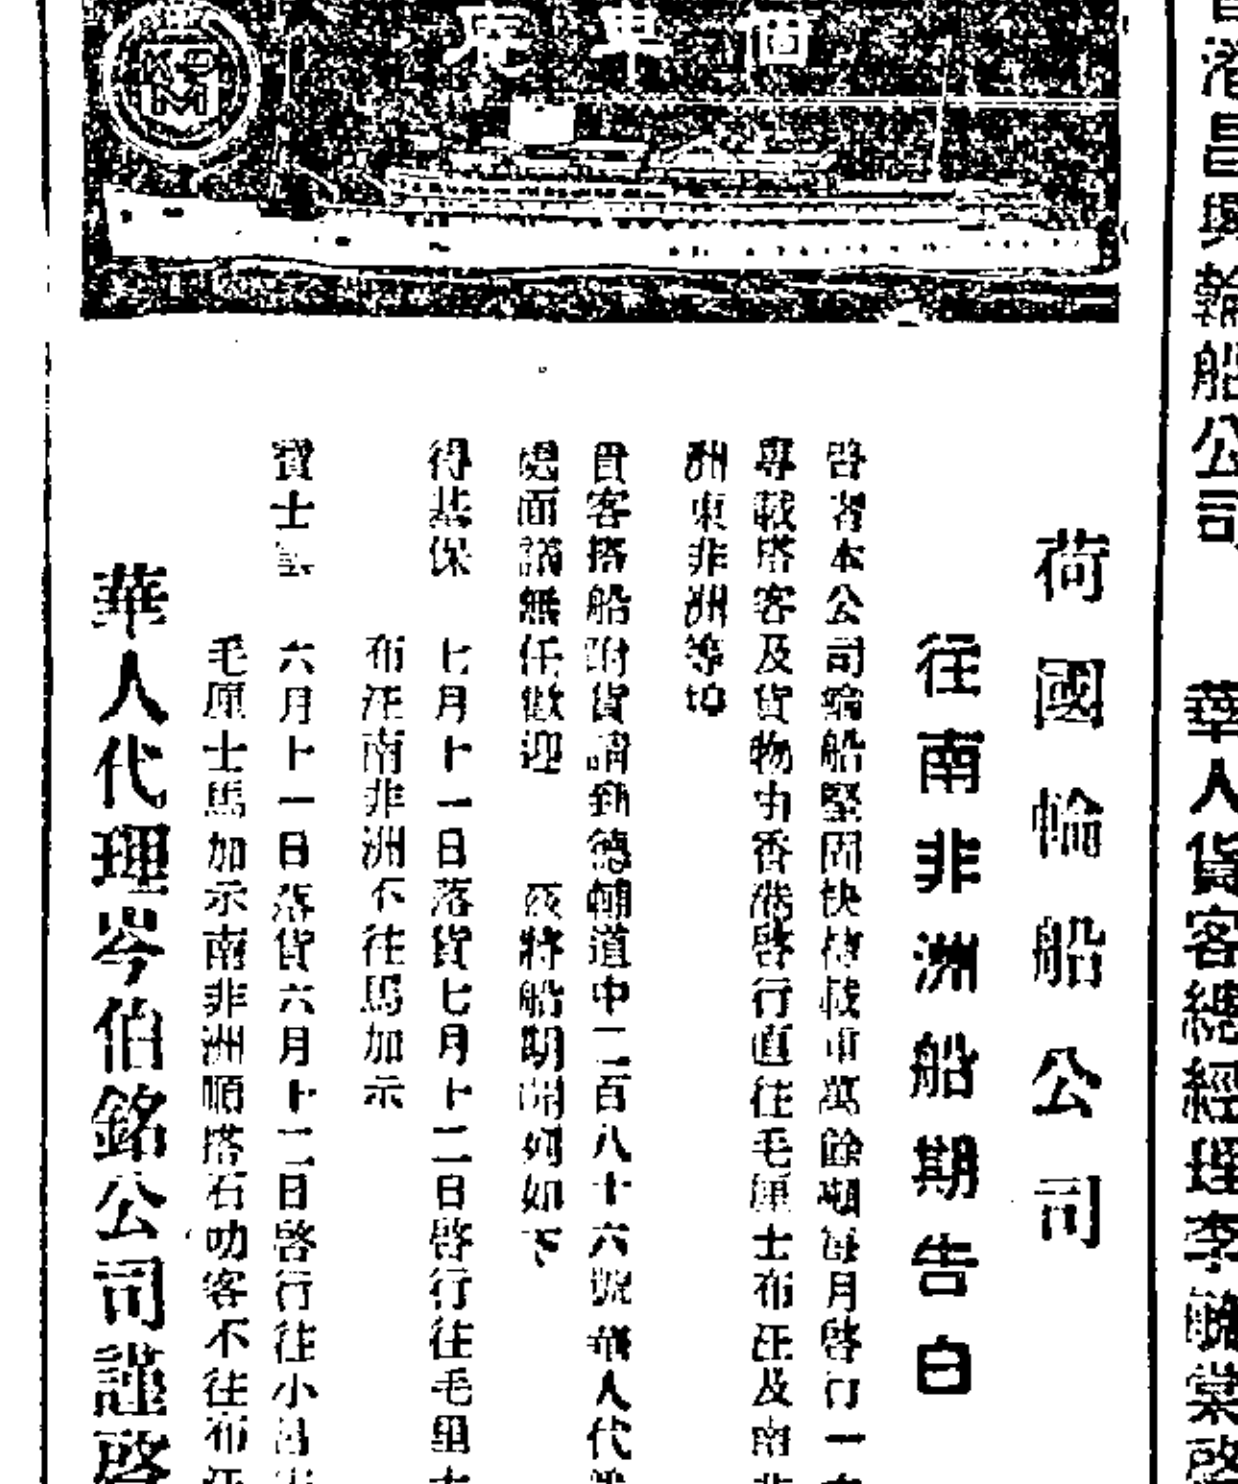 昌興輪船公司
華人貨客總經理李毓棠啓
個卑東
KPM
荷國輪船公司
往南非洲船期告白
啓者本公司輪船堅固快捷載重萬餘噸每月啓行一
專載搭客及貨物由香港啓行直往毛厘士布汪及南非
洲東非洲等埠
貴客搭船附貨請到德輔道中二百八十六號華人代
處面議無任歡迎 茲將船期開列如下
得基保 七月十一日落貨七月十二日啓行往毛里士
布汪南非洲不往馬加示
寶士 六月十一日落貨六月十二日啓行往小呂宋
毛厘士馬加示南非洲順搭石叻客不往布汪
華人代理岑伯銘公司謹啓